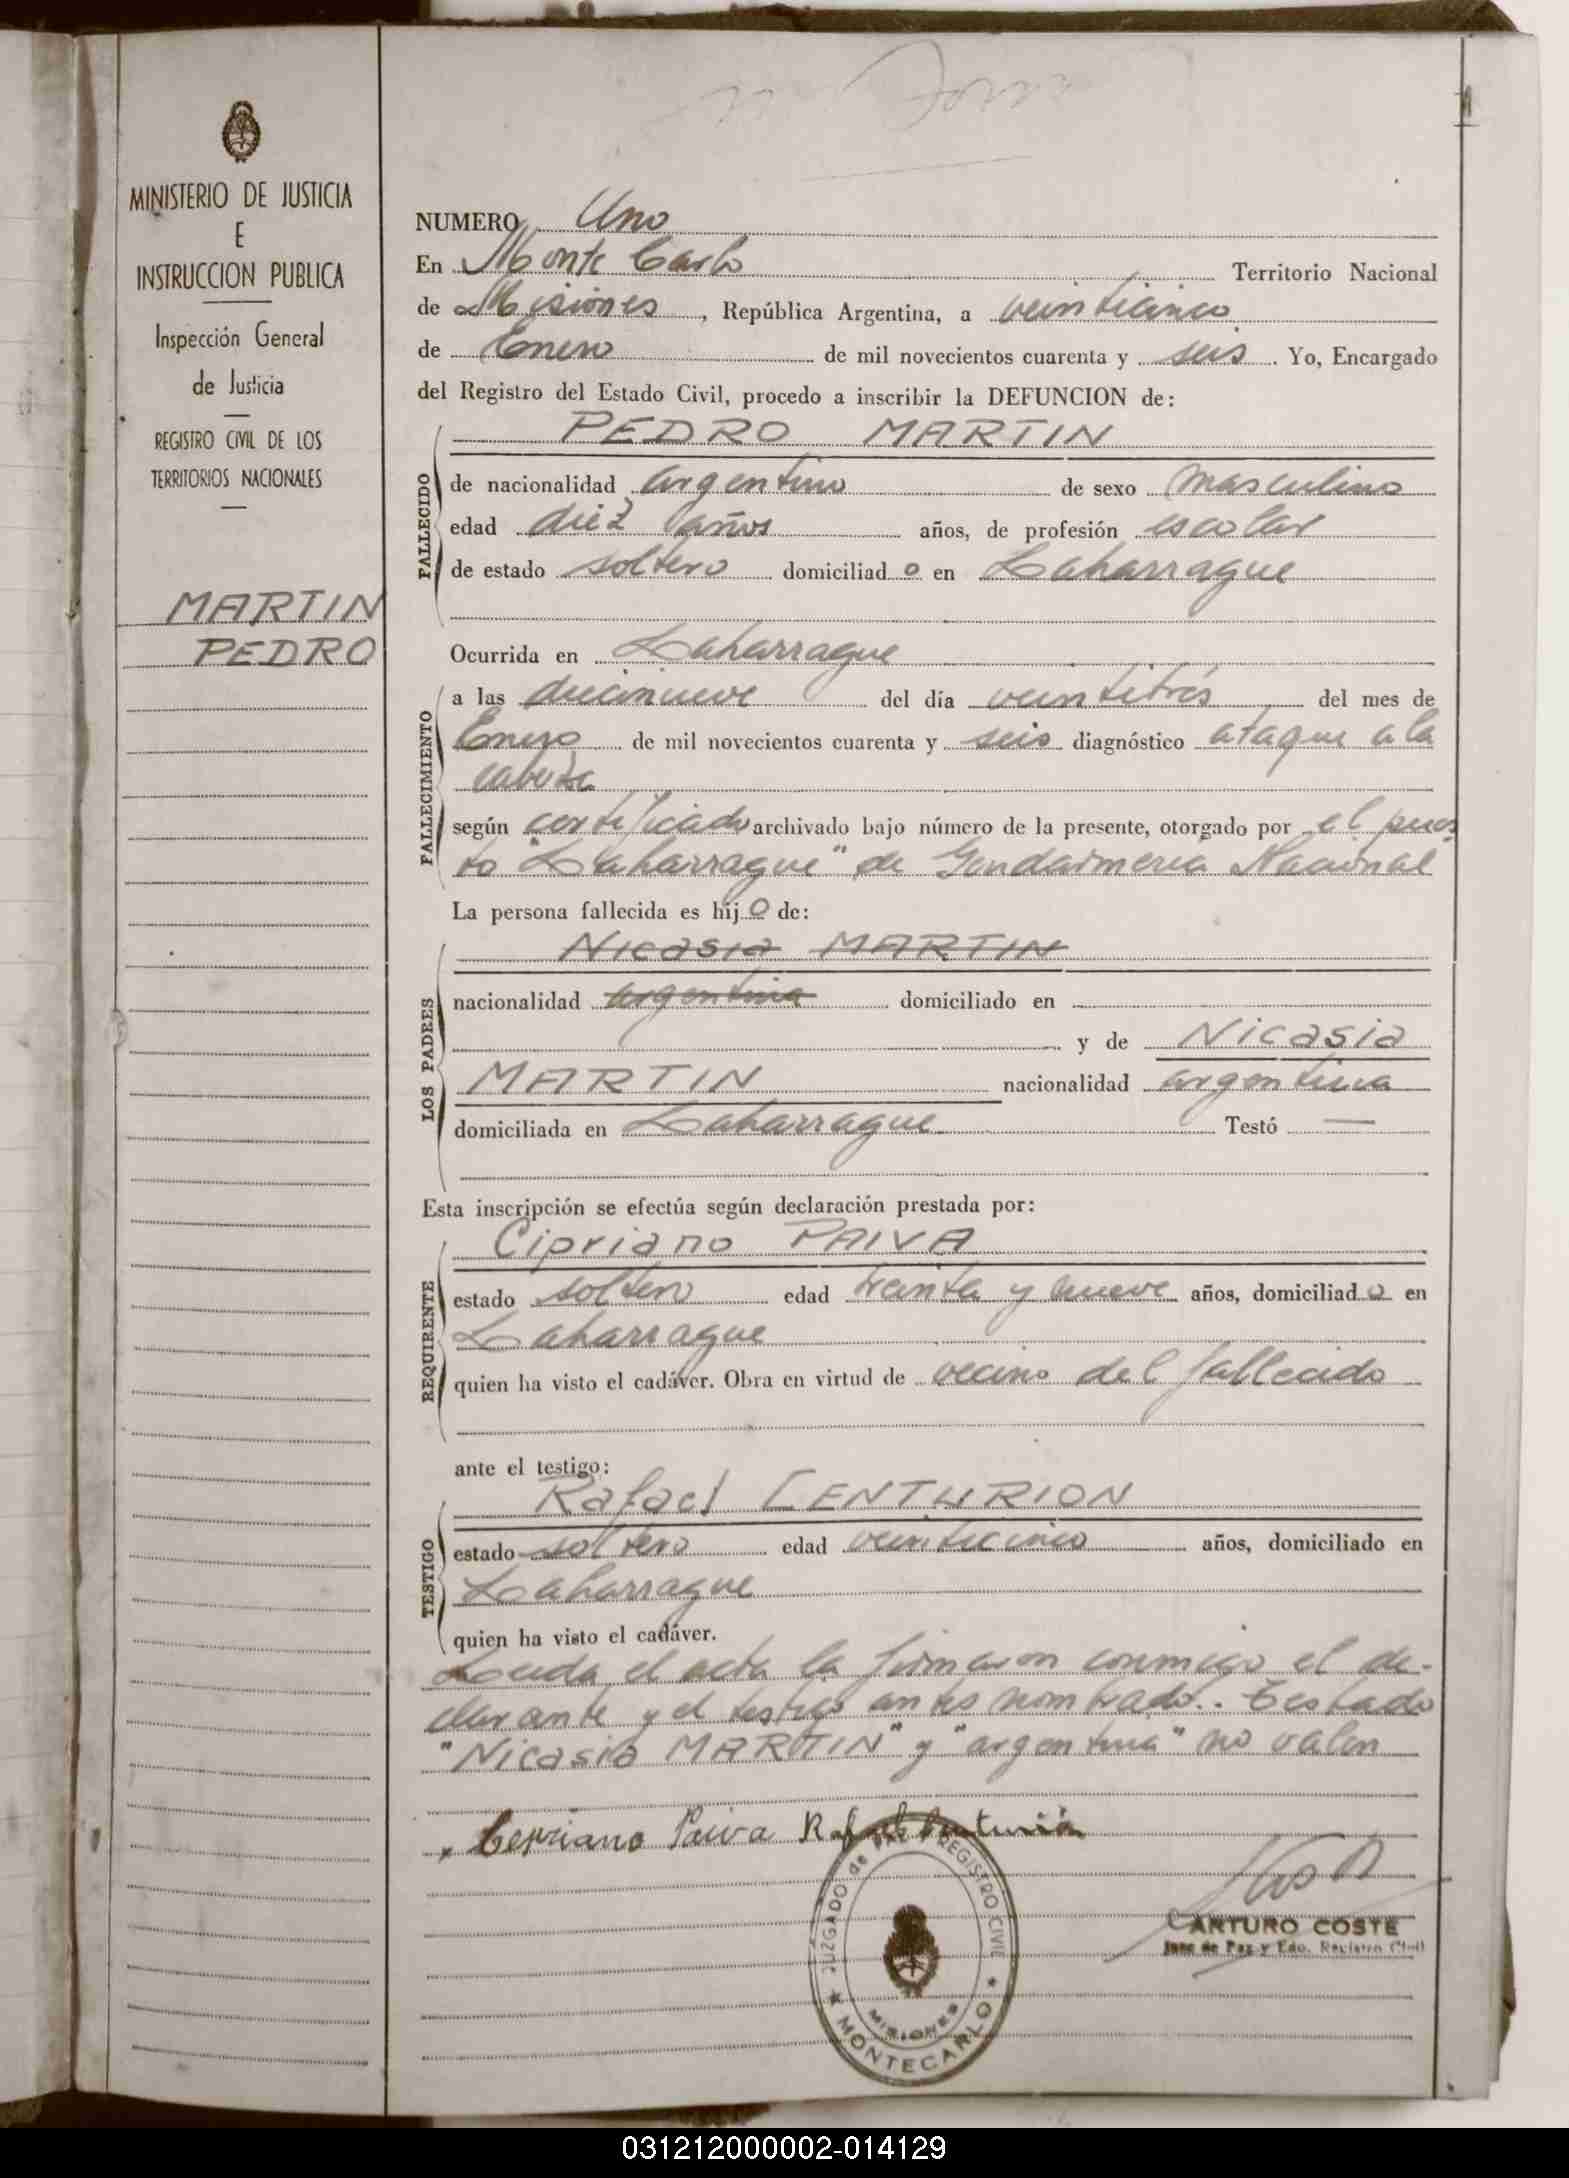 MINISTERIO DE JUSTICIA
E
INSTRUCCION PUBLICA
Inspección General
de Justicia
REGISTRO CIVIL DE LOS
TERRITORIOS NACIONALES
MARTIN
PEDRO
NUMERO Uno
En Monte Carlo Territorio Nacional
de Misiones, República Argentina, a veinticinco
de Enero de mil novecientos cuarenta y seis. Yo, Encargado
del Registro del Estado Civil, procedo a inscribir la DEFUNCION de:
PEDRO MARTIN
FALLECIDO
de nacionalidad argentino de sexo masculino
edad diez años años, de profesión escolar
de estado soltero domiciliado en Laharrague
Ocurrida en Laharrague
FALLECIMIENTO
a las diecinueve del día veintitrés del mes de
Enero de mil novecientos cuarenta y seis diagnóstico ataque a la
cabeza
según certificado archivado bajo número de la presente, otorgado por el pues-
to "Laharrague" de Gendarmeria Nacional
La persona fallecida es hijo de:
LOS PADRES
Nicasia MARTIN
nacionalidad argentina domiciliado en
y de Nicasia
MARTIN nacionalidad argentina
domiciliada en Laharrague Testó —
Esta inscripción se efectúa según declaración prestada por:
REQUIRENTE
Cipriano PAIVA
estado soltero edad treinta y nueve años, domiciliado en
Laharrague
quien ha visto el cadáver. Obra en virtud de vecino del fallecido
ante el testigo:
TESTIGO
Rafael CENTURION
estado soltero edad veinticinco años, domiciliado en
Laharrague
quien ha visto el cadáver.
Leida el acta la firmaron conmigo el de-
clarante y el testigo antes nombrado. Testado
"Nicasia MARTIN" y "argentina" no valen
Cepriano Paiva Rafael Centurión
JUZGADO de PAZ Y REGISTRO CIVIL
MISIONES
★ MONTECARLO ★
ARTURO COSTE
Juez de Paz y Edo. Registro Civil
031212000002-014129